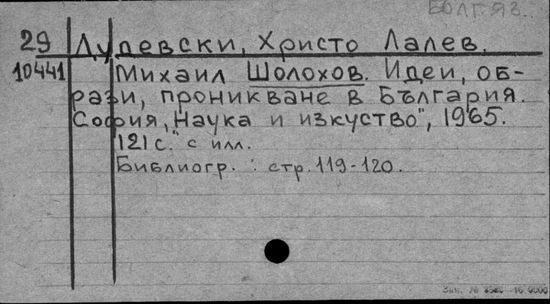 Болг.яз.
29 Дудевски, Христо Лалев.
10441 Михаил Шолохов. Идеи, об-
рази, проникване в България.
София, "Наука и изкуство", 1965.
121 с. с илл.
Библиогр.: стр. 119-120.